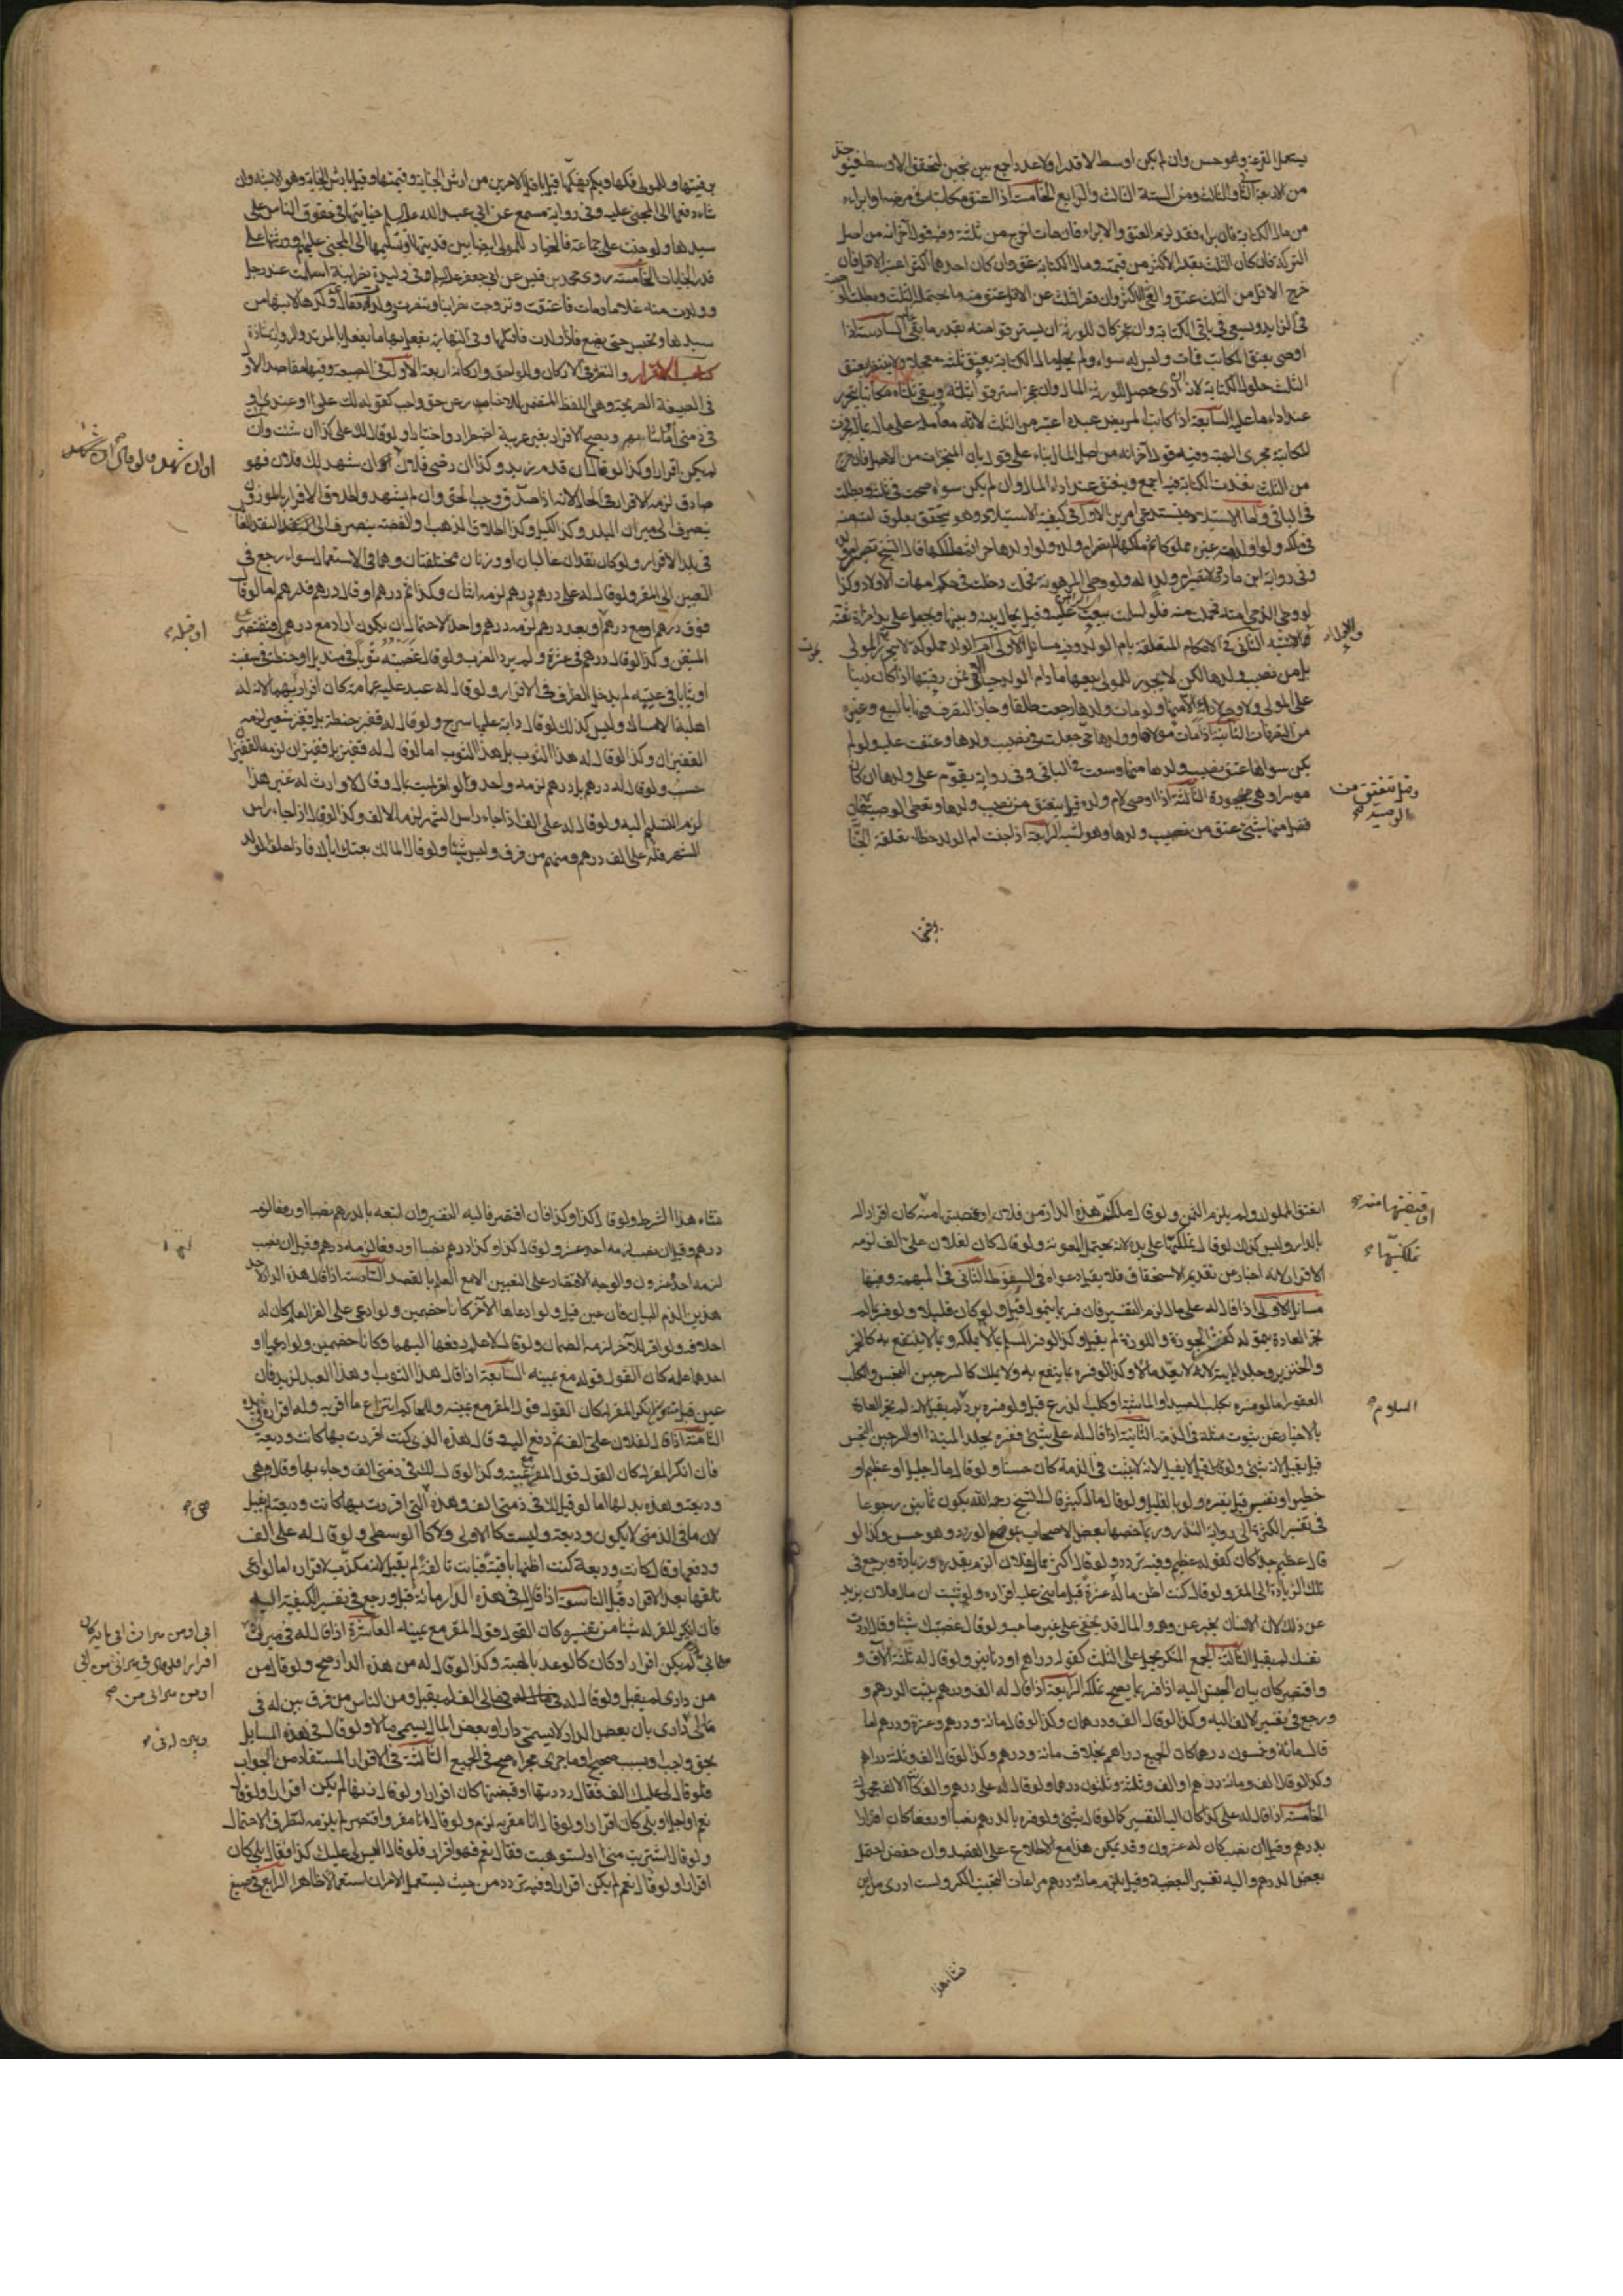 يستعمل القرعة وهو حسن وان لم يكن اوسط لا قدرا ولا عددا جمع بين نجمين ليتحقق الاوسط فيؤخذ
من الاربعة الثاني والثالث ومن الستة الثالث والرابع الخامسة اذا اعتق مكاتبه في مرضه او ابراه
من مال الكتابة فان برء فقد لزم العتق والابراء فان مات اخرج من ثلثه وفيه قول آخر انه من اصل
التركة فان كان الثلث بقدر الاكثر من قيمته ومال الكتابة عتق وان كان احدهما اكثر اعتبر الاقل فان
خرج الاقل من الثلث عتق والغي الاكثر وان قصر الثلث عن الاقل عتق منه ما يحتمل الثلث وبطلت الوصية
في الزايد ويسعى في باقي الكتابة وان عجز كان للورثة ان يسترقوا منه بقدر ما بقي السادسة اذا
اوصى بعتق المكاتب فمات وليس له سواه ولم يحل مال الكتابة يعتق ثلثه معجلا ولا ينتظر بعتق
الثلث حلول الكتابة لانه ان ادى حصل للورثة المال وان عجز استرقوا ثلثيه ويبقى ثلثاه مكاتبا يتحرر
عند اداء ما عليه السابعة اذا كاتب المريض عبده اعتبر من الثلث لانه معاملة على ماله بماله فجرت
المكاتبة مجرى الهبة وفيه قول آخر انه من اصل المال بناء على القول بان المنجزات من الاصل فان خرج
من الثلث نفذت الكتابة فيه اجمع وينعتق عند اداء المال وان لم يكن سواه صحت في ثلثه وبطلت
في الباقي واما الاستيلاد فيستدعي امرين الاول في كيفية الاستيلاد وهو يتحقق بعلوق امته منه
في ملكه ولو اولد امة غيره مملوكا ثم ملكها لم تصر ام ولده ولو اولدها حرا ثم ملكها قال الشيخ تصير ام ولد
وفي رواية ابن مارد لا تصير ام ولده له ولو وطي المرهونة فحملت دخلت في حكم امهات الاولاد وكذا
لو وطي الذمي امته فحملت منه فلو اسلمت بيعت عليه وقيل يحال بينه وبينها وتجعل على يد امراة ثقة
والاول اشبه
والاشبه الثاني في الاحكام المتعلقة بام الولد وفيه مسائل الاولى ام الولد مملوكة لا تتحرر بموت المولى
بل من نصيب ولدها لكن لا يجوز للمولى بيعها ما دام الولد حيا الا في ثمن رقبتها اذا كان دينا
على المولى ولا وجه لادائه الا منها ولو مات ولدها رجعت طلقا وجاز التصرف فيها بالبيع وغيره
من التصرفات الثانية اذا مات مولاها وولدها حي جعلت في نصيب ولدها وعتقت عليه ولو لم
يكن سواها عتق نصيب ولدها منها وسعت في الباقي وفي رواية يقوم على ولدها ان كان
موسرا وهي مهجورة الثالثة اذا اوصى لام ولده قيل ينعتق من نصيب ولدها وتعطى الوصية فان
وقيل تنعتق من الوصية
فضل منها شيء عتق من نصيب ولدها وهو اشبه الرابعة اذا جنت ام الولد خطا تعلقت الجناية
برقبتها
برقبتها وللمولى فكها وبكم يفكها قيل باقل الامرين من ارش الجناية وقيمتها وقيل بارش الجناية وهو الاشبه وان
شاء دفعها الى المجني عليه وفي رواية مسمع عن ابي عبد الله عليه السلم جنايتها في حقوق الناس على
سيدها ولو جنت على جماعة فالخيار للمولى ايضا بين فديتها او تسليمها الى المجني عليهم وورثتهم على
قدر الجنايات الخامسة روى محمد بن قيس عن ابي جعفر عليه السلم في وليدة نصرانية اسلمت عند رجل
وولدت منه غلاما ومات فاعتقت وتزوجت نصرانيا وتنصرت وولدت فقال ولدها لابنها من
سيدها وتحبس حتى تضع فاذا ولدت فاقتلها وفي النهاية يفعل بها ما يفعل بالمرتدة والرواية شاذة
كتاب الاقرار والنظر في الاركان واللواحق واركانه اربعة الاول في الصيغة وفيها مقاصد الاول
في الصيغة الصريحة وهي اللفظ المتضمن للاخبار عن حق واجب كقوله لك علي او عندي او
في ذمتي وما اشبهه ويصح الاقرار بغير عربية اضطرارا واختيارا ولو قال لك علي كذا ان شئت وان شئت
لم يكن اقرارا وكذا لو قال ان قدم زيد وكذا ان رضي فلان او ان شهد لك فلان فهو
صادق لزمه الاقرار في الحال لانه اذا صدق وجب الحق وان لم يشهد واطلاق الاقرار بالموزون
ينصرف الى ميزان البلد وكذا الكيل وكذا اطلاق الذهب والفضة ينصرف الى النقد الغالب
في بلد الاقرار ولو كان نقدان غالبان او وزنان مختلفتان وهما في الاستعمال سواء رجع في
التعيين الى المقر ولو قال له علي درهم ودرهم لزمه اثنان وكذا ثم درهم او قال درهم فدرهم اما لو قال
او قبله
فوق درهم او مع درهم او بعد درهم لزمه درهم واحد لاحتمال ان يكون اراد مع درهم لي فيقتصر على
المتيقن وكذا لو قال درهم في عشرة ولم يرد الضرب ولو قال غصبته ثوبا في منديل او حنطة في سفينة
او ثيابا في عيبة لم يدخل الظرف في الاقرار ولو قال له عبد عليه عمامة كان اقرارا بهما لانه له
اهلية الامساك وليس كذلك لو قال دابة عليها سرج ولو قال له قفيز حنطة بل قفيز شعير لزمه
القفيزان وكذا لو قال له هذا الثوب بل هذا الثوب اما لو قال له قفيز بل قفيزان لزمه القفيزان
حسب ولو قال له درهم بل درهم لزمه واحد ولو اقر لميت بمال وقال لا وارث له غير هذا
لزم التسليم اليه ولو قال له علي الف اذا جاء راس الشهر لزمه الالف وكذا لو قال اذا جاء راس
الشهر فله علي الف درهم ومنهم من فرق وليس شيئا ولو قال المالك بعتك اباك فاذا حلف الولد
انعتق المملوك ولم يلزم الثمن ولو قال ملكت هذه الدار من فلان او غصبتها منه كان اقرارا له
او قبضتها منه
بالدار وليس كذلك لو قال تملكتها على يده لانه يحتمل المعونة ولو قال كان لفلان علي الف لزمه
تملكتها
الاقرار لانه اخبار عن تقديم الاستحقاق فلا يقبل دعواه في السقوط الثاني في المبهمة وفيها
مسائل الاولى اذا قال له علي مال الزم التفسير فان فسر بما يتمول قبل ولو كان قليلا ولو فسر بما لم
تجر العادة بتموله كقشر الجوزة واللوزة لم يقبل وكذا لو فسر المسلم بما لا يملكه ولا ينتفع به كالخمر
والخنزير وجلد الميتة لانه لا يعد مالا وكذا لو فسره بما ينتفع به ولا يملك كالسرجين النجس والكلب
العقور اما لو فسره بكلب الصيد او الماشية او كلب الزرع قبل ولو فسره برد السلام لم يقبل لانه لم تجر العادة
السلام
بالاخبار عن ثبوت مثله في الذمة الثانية اذا قال له علي شيء ففسره بجلد الميتة او السرجين النجس
قيل يقبل لانه شيء ولو قيل لا يقبل لانه لا يثبت في الذمة كان حسنا ولو قال مال جليل او عظيم او
خطير او نفيس قبل تفسيره ولو بالقليل ولو قال مال كثير قال الشيخ رحمه الله يكون ثمانين رجوعا
في تفسير الكثرة الى رواية النذر وربما خصها بعض الاصحاب بموضع الورود وهو حسن وكذا لو
قال عظيم جدا كان كقوله عظيم وفيه تردد ولو قال اكثر من مال فلان الزم بقدره وزيادة ويرجع في
تلك الزيادة الى المقر ولو قال كنت اظن ماله عشرة قبل ما بنى عليه اقراره ولو ثبت ان مال فلان يزيد
عن ذلك لان الانسان يخبر عن وهمه والمال قد يخفى على غير صاحبه ولو قال غصبتك شيئا وقال اردت
نفسك لم يقبل الثالثة الجمع المنكر يحمل على الثلث كقوله دراهم او دنانير ولو قال له ثلثة آلاف و
واقتصر كان بيان الجنس اليه اذا فسر بما يصح تملكه الرابعة اذا قال له الف ودرهم يثبت الدرهم و
ورجع في تفسير الالف اليه وكذا لو قال الف ودرهمان وكذا لو قال مائة ودرهم وعشرة ودرهم اما
قال مائة وخمسون درهما كان الجميع دراهم بخلاف مائة ودرهم وكذا لو قال الف وثلثة دراهم
وكذا لو قال الف ومائة درهم او الف وثلثة وثلثون درهما ولو قال له علي درهم والف كانت الالف مجهولة
الخامسة اذا قال له علي كذا كان اليه التفسير كما لو قال شيء ولو فسره بالدرهم نصبا او رفعا كان اقرارا
بدرهم وقيل ان نصب كان له عشرون وقد يمكن هذا مع الاطلاع على القصد وان خفض احتمل
بعض الدرهم واليه تفسير البعضية وقيل يلزمه مائة درهم مراعات لتجنب الكسر ولست ادري من اين
نشاء هذا
نشاء هذا الشرط ولو قال كذا وكذا فان اقتصر فاليه التفسير وان اتبعه بالدرهم نصبا او رفعا لزمه
درهم وقيل ان نصب لزمه احد عشر ولو قال كذا وكذا درهم نصبا او رفعا لزمه درهم وقيل ان نصب
لزمه احد وعشرون والوجه الاقتصار على التعيين الا مع العلم بالقصد السادسة اذا قال هذه الدار لاحد
هذين الزم البيان فان عين قبل ولو ادعاها الآخر كانا خصمين ولو ادعى على المقر العلم كان له
احلافه ولو اقر للآخر لزمه الضمان ولو قال لا اعلم دفعها اليهما وكانا خصمين ولو ادعيا او
احدهما علمه كان القول قوله مع يمينه السابعة اذا قال هذا الثوب او هذا العبد لزيد فان
عين قبل منه وان انكر المقر له كان القول قول المقر مع يمينه وللحاكم انتزاع ما اقر به وله اقراره في يده
الثامنة اذا قال لفلان علي الف ثم دفع اليه وقال هذه التي كنت اقررت بها كانت وديعة
فان انكر المقر له كان القول قول المقر مع يمينه وكذا لو قال لك في ذمتي الف وجاء بها وقال هي
وديعة وهذه بدلها اما لو قال لك في ذمتي الف وهذه التي اقررت بها كانت وديعة لم يقبل
هي
لان ما في الذمة لا يكون وديعة وليست كالاولى ولا كالوسطى ولو قال له علي الف
ودفعها وقال كانت وديعة كنت اظنها باقية فبانت تالفة لم يقبل لانه مكذب لاقراره اما لو ادعى
تلفها بعد الاقرار قبل التاسعة اذا قال له في هذه الدار مائة قبل ورجع في تفسير الكيفية اليه
فان انكر المقر له شيئا من تفسيره كان القول قول المقر مع يمينه العاشرة اذا قال له في ميراث
ابي او من ميراث ابي مائة كان اقرارا ولو قال في ميراثي من ابي او من ميراثي من
ابي لم يكن اقرارا وكان كالوعد بالهبة وكذا لو قال له من هذه الدار صح ولو قال من
من داري لم يقبل ولو قال له في مالي الف لم يقبل ومن الناس من فرق بين له في
وبين له في
مالي داري بان بعض الدار لا يسمى دارا وبعض المال يسمى مالا ولو قال في هذه المسائل
بحق واجب او بسبب صحيح او ما جرى مجراه صح في الجميع الثالث في الاقرار المستفاد من الجواب
فلو قال لي عليك الف فقال رددتها او قبضتها كان اقرارا ولو قال زنها لم يكن اقرارا ولو قال
نعم او اجل او بلى كان اقرارا ولو قال انا مقر به لزم ولو قال انا مقر واقتصر لم يلزمه لتطرق الاحتمال
ولو قال اشتريت مني او استوهبت فقال نعم فهو اقرار فلو قال اليس لي عليك كذا فقال بلى كان
اقرارا ولو قال نعم لم يكن اقرارا وفيه تردد من حيث يستعمل الامران استعمالا ظاهرا الرابع في صيغ